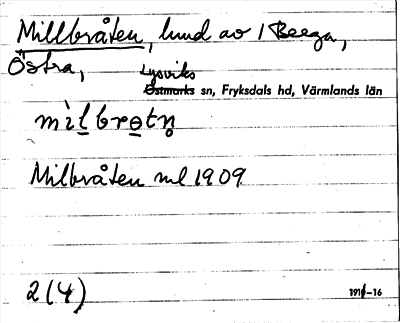 Millbråten, lund av 1 Berga,
Östra,
Lysviks
Östmarks sn, Fryksdals hd, Värmlands län
mìlbrotn̥
Milbråten ml 1909
2(4) 1911-16